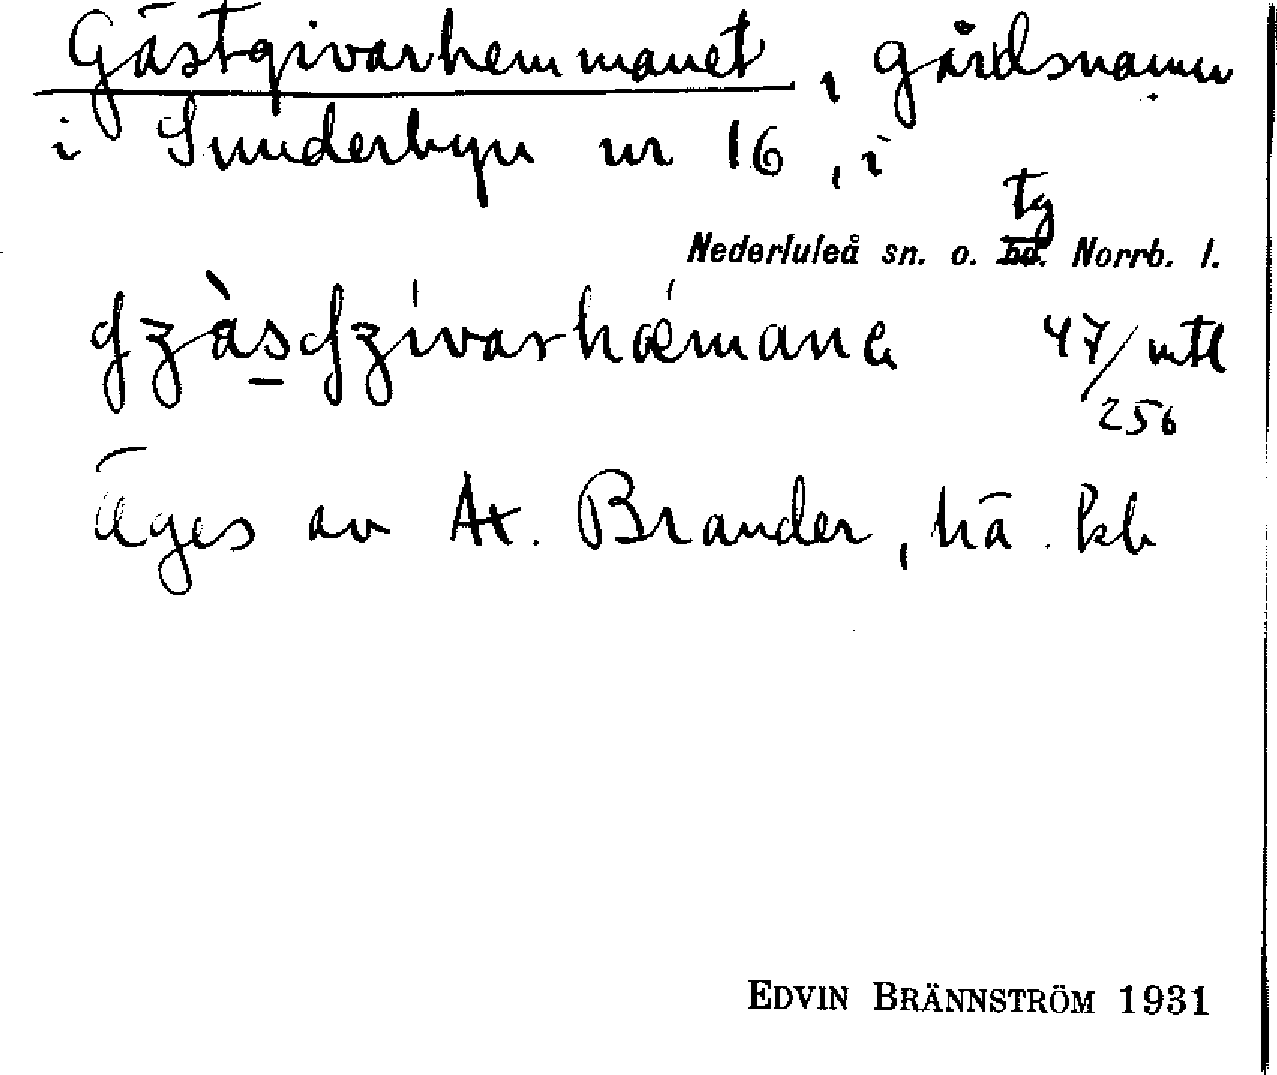 Gästgivarhemmanet, gårdsnamn
i Sunderbyn nr 16, i
tg
Nederluleå sn. o. hd. Norrb. l.
47/256 mtl
Äges av Ax. Brander, hä. kb
EDVIN BRÄNNSTRÖM 1931